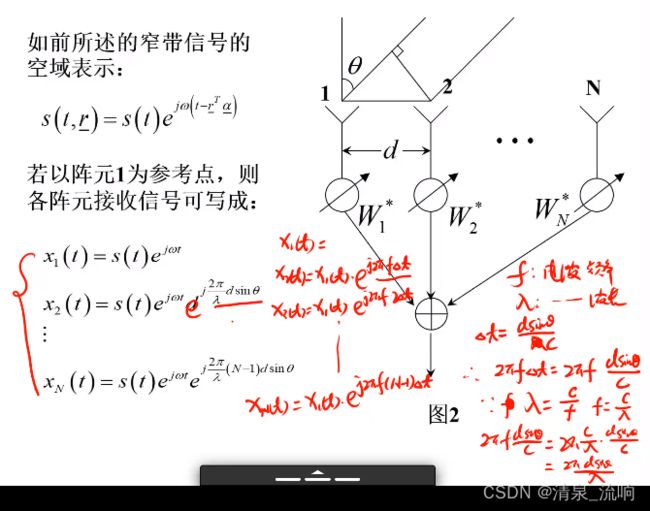 如前所述的窄带信号的
空域表示：
s(t,r) = s(t)e^{jω(t-r^T α)}
若以阵元1为参考点，则
各阵元接收信号可写成：
x_1(t) = s(t)e^{jωt}
x_2(t) = s(t)e^{jωt} e^{j\frac{2π}{λ}d sinθ}
⋮
x_N(t) = s(t)e^{jωt}e^{j\frac{2π}{λ}(N-1)d sinθ}
θ
1
2
N
d
W_1^*
W_2^*
W_N^*
图2
x_1(t)=
x_2(t)=x_1(t)·e^{j2πfΔt}
x_3(t)=x_1(t)e^{j2πf2Δt}
x_N(t)=x_1(t)·e^{j2πf(N-1)Δt}
f:
λ:
Δt=\frac{dsinθ}{C}
∴ 2πfΔt=2πf\frac{dsinθ}{C}
∵ λ=\frac{C}{f} f=\frac{C}{λ}
2πf\frac{dsinθ}{C}=2π\frac{C}{λ}·\frac{dsinθ}{C}
=\frac{2πdsinθ}{λ}
CSDN @清泉_流响